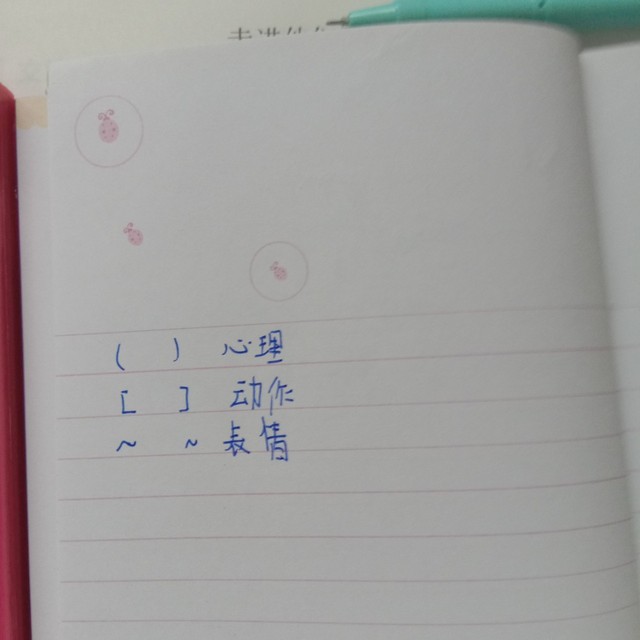 ( ) 心理
[ ] 动作
~ ~ 表情